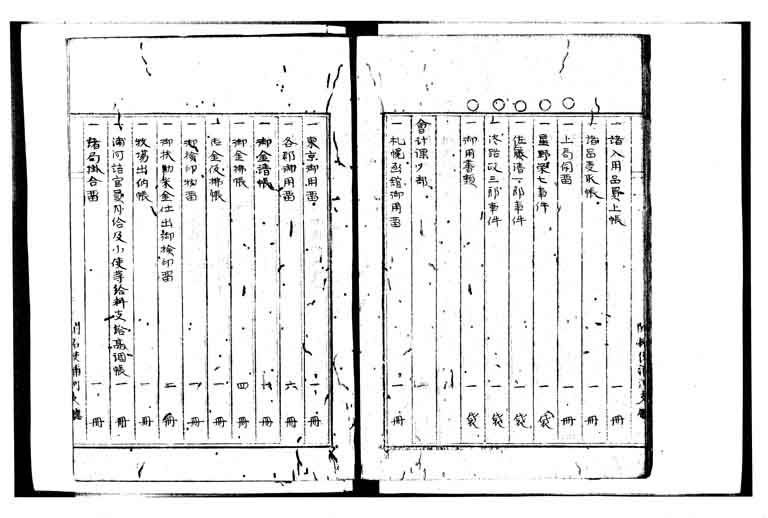 一 諸入用品買上帳 一 冊
一 諸品受取帳 一 冊
一 上局伺留 一 冊
一 星野栄七事件 一 袋
一 佐藤清一郎事件 一 袋
一 次郎事件 一 袋
一 御用書類 一 袋
會計課ノ部
一 札幌函館御用留 一 冊
一 東京御用留 一 冊
一 各郡御用留 六 冊
一 御金請帳 一 冊
一 御金拂帳 四 冊
一 金仮拂帳 一 冊
一 御検印物留 一 冊
一 御扶助米金仕出御検印留 二 冊
一 牧場出納帳 一 冊
一 浦河詰官員月給及小使等給料支給高調帳 一 冊
一 諸局掛合留 一 冊